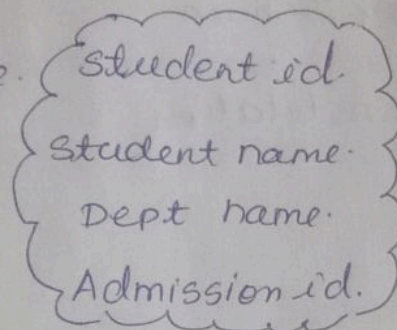 Student id.
Student name.
Dept name.
Admission id.